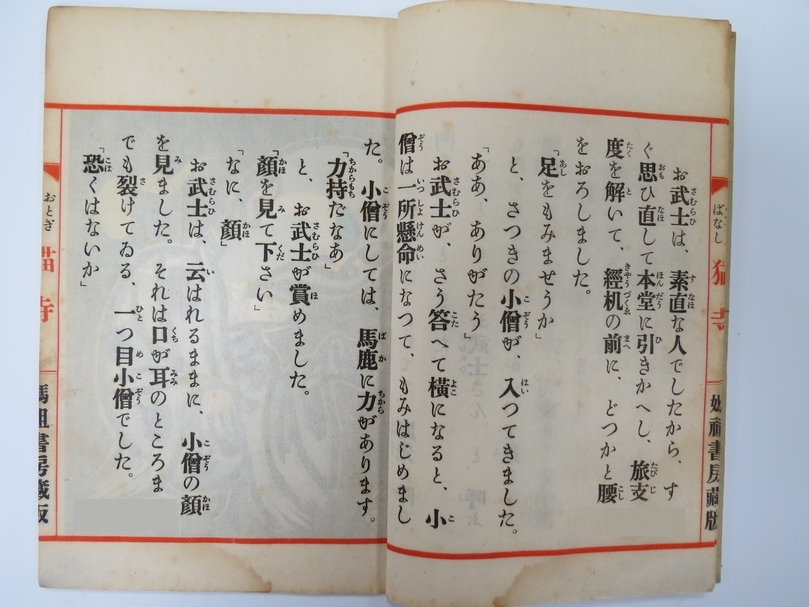 ばなし 猫寺
お武士は、素直な人でしたから、す
ぐ思ひ直して本堂に引きかへし、旅支
度を解いて、經机の前に、どつかと腰
をおろしました。
「足をもみませうか」
と、さつきの小僧が、入つてきました。
「ああ、ありがたう」
お武士が、さう答へて橫になると、小
僧は一所懸命になつて、もみはじめまし
た。小僧にしては、馬鹿に力があります。
「力持だなあ」
と、お武士が賞めました。
「顏を見て下さい」
「なに、顏」
お武士は、云はれるままに、小僧の顏
を見ました。それは口が耳のところま
でも裂けてゐる、一つ目小僧でした。
「恐くはないか」
おとぎ 猫寺
書房藏版